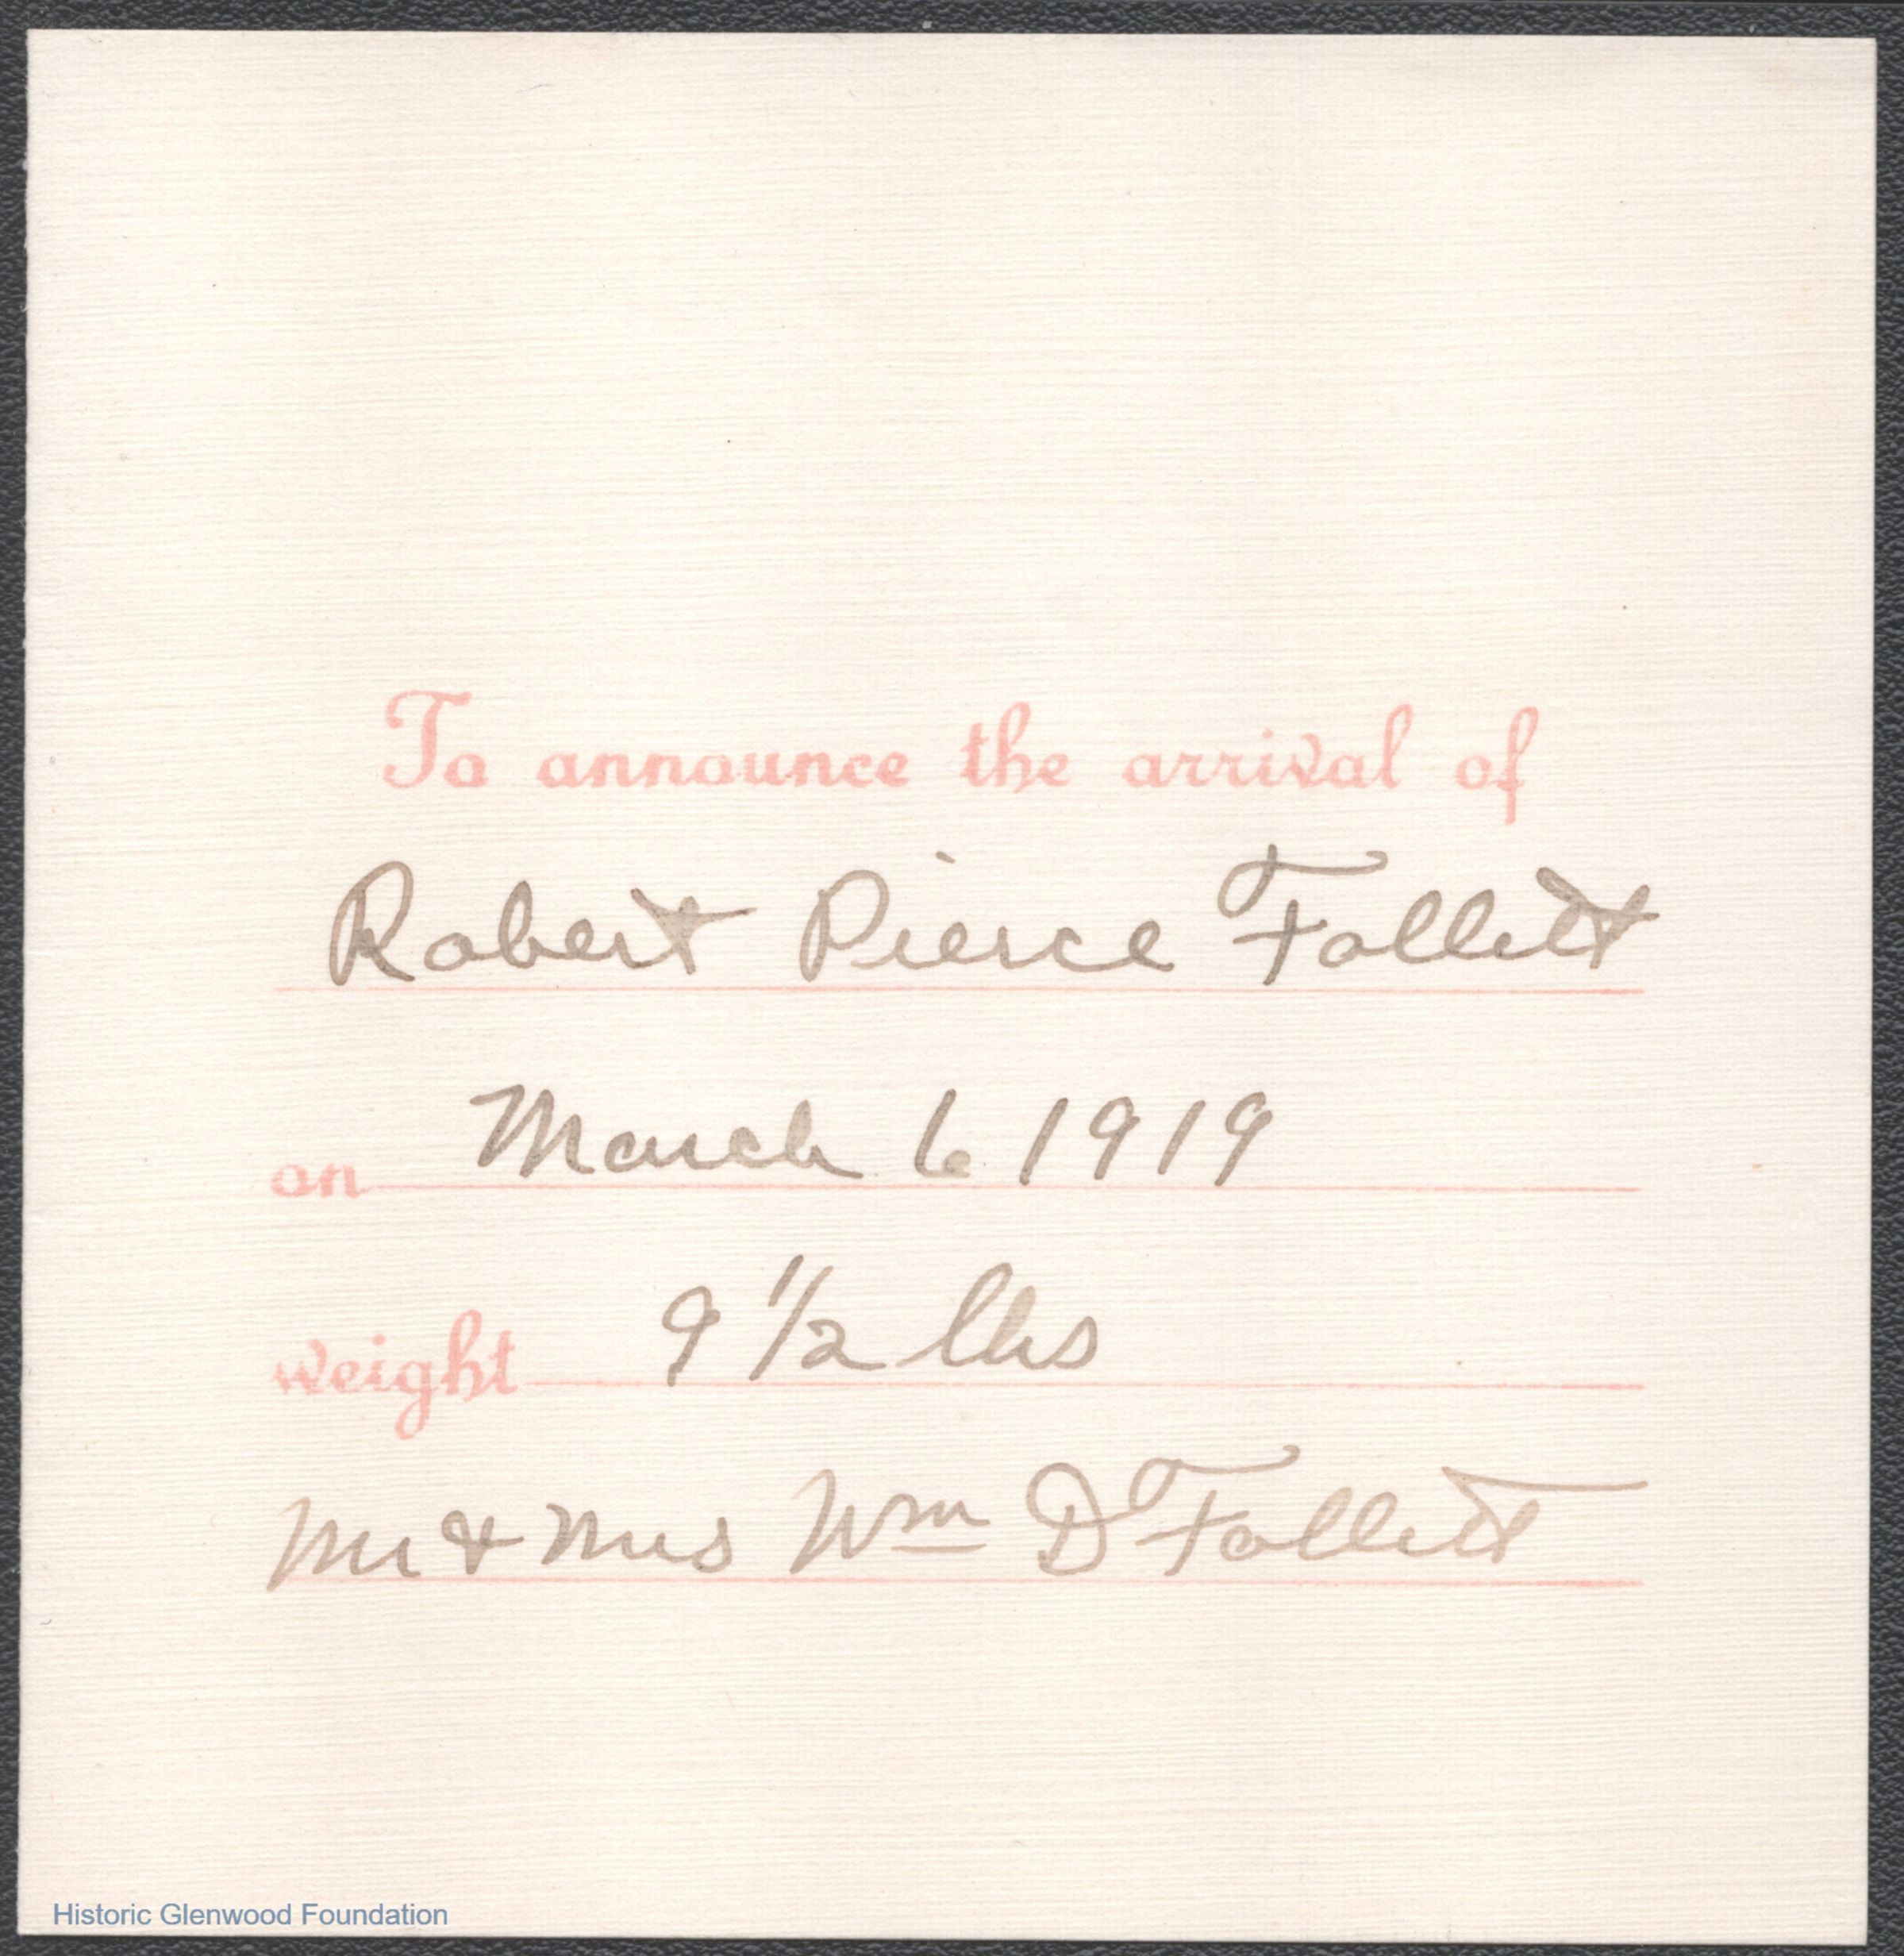 To announce the arrival of
Robert Pierce Follett
on March 6 1919
weight 9 1/2 lbs
Mr & Mrs Wm D Follett
Historic Glenwood Foundation